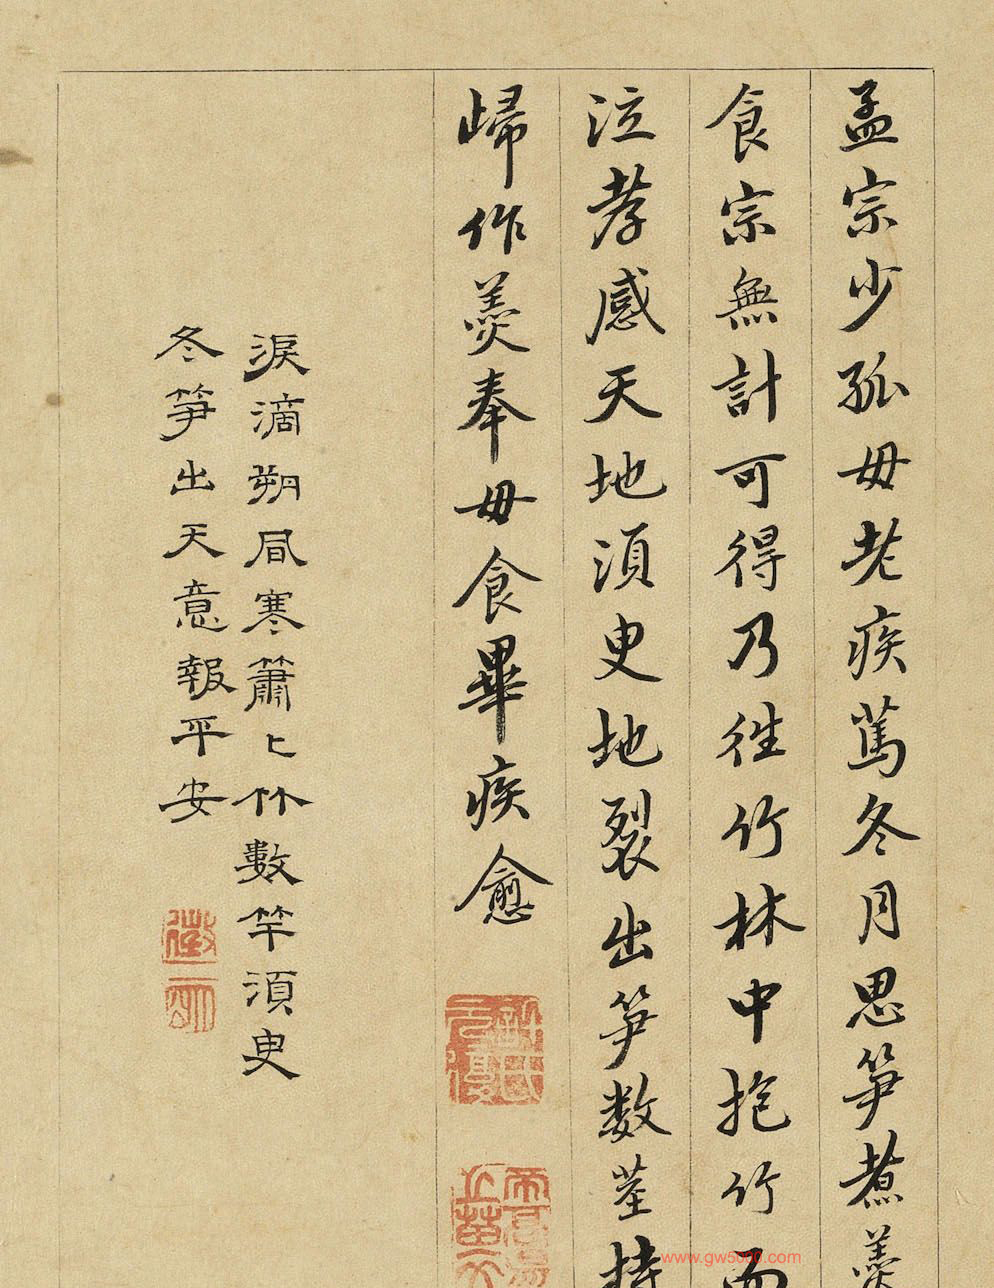 孟宗少孤母老疾篤冬月思笋煮羹
食宗無計可得乃徃竹林中抱竹而
泣孝感天地湏臾地裂出笋数茎持
歸作羹奉母食畢疾愈
淚滴朔風寒蕭〻竹數竿湏臾
冬笋出天意報平安
徵明
www.gw5000.com